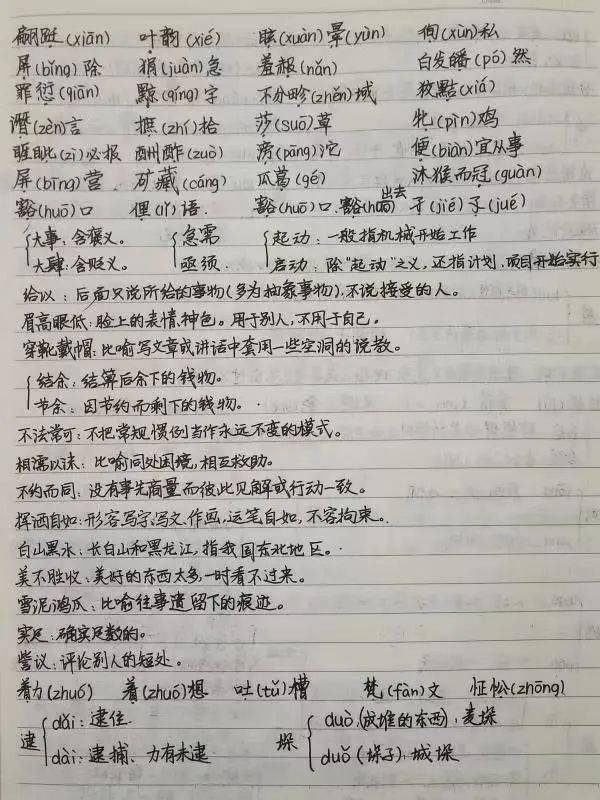 翩跹(xiān) 叶韵(xié) 眩(xuàn)晕(yùn) 徇(xùn)私
屏(bǐng)除 狷(juàn)急 羞赧(nǎn) 白发皤(pó)然
罪愆(qiān) 黥(qíng)字 不分畛(zhěn)域 狡黠(xiá)
谮(zèn)言 摭(zhí)拾 莎(suō)草 牝(pìn)鸡
睚眦(zì)必报 酬酢(zuò) 滂(pāng)沱 便(biàn)宜从事
屏(bīng)营 矿藏(cáng) 瓜葛(gé) 沐猴而冠(guàn)
豁(huō)口 俚(lǐ)语 豁(huō)口、豁(huō)出去 孑(jié)孓(jué)
大事：含褒义。 急需 起动：一般指机械开始工作
大肆：含贬义。 亟须 启动：除“起动”之义，还指计划、项目开始实行
给以：后面只说所给的事物(多为抽象事物)，不说接受的人。
眉高眼低：脸上的表情、神色。用于别人，不用于自己。
穿靴戴帽：比喻写文章或讲话中套用一些空洞的说教。
结余：结算后余下的钱物。
节余：因节约而剩下的钱物。
不法常可：不把常规、惯例当作永远不变的模式。
相濡以沫：比喻同处困境，相互救助。
不约而同：没有事先商量而彼此见解或行动一致。
挥洒自如：形容写字、写文、作画，运笔自如，不容拘束。
白山黑水：长白山和黑龙江，指我国东北地区。
美不胜收：美好的东西太多，一时看不过来。
雪泥鸿爪：比喻往事遗留下的痕迹。
实足：确实足数的。
訾议：评论别人的短处。
着力(zhuó) 着(zhuó)想 吐(tǔ)槽 梵(fàn)文 怔忪(zhōng)
逮 dǎi：逮住 垛 duò(成堆的东西)：麦垛
dài：逮捕、力有未逮 duǒ(垛子)：城垛